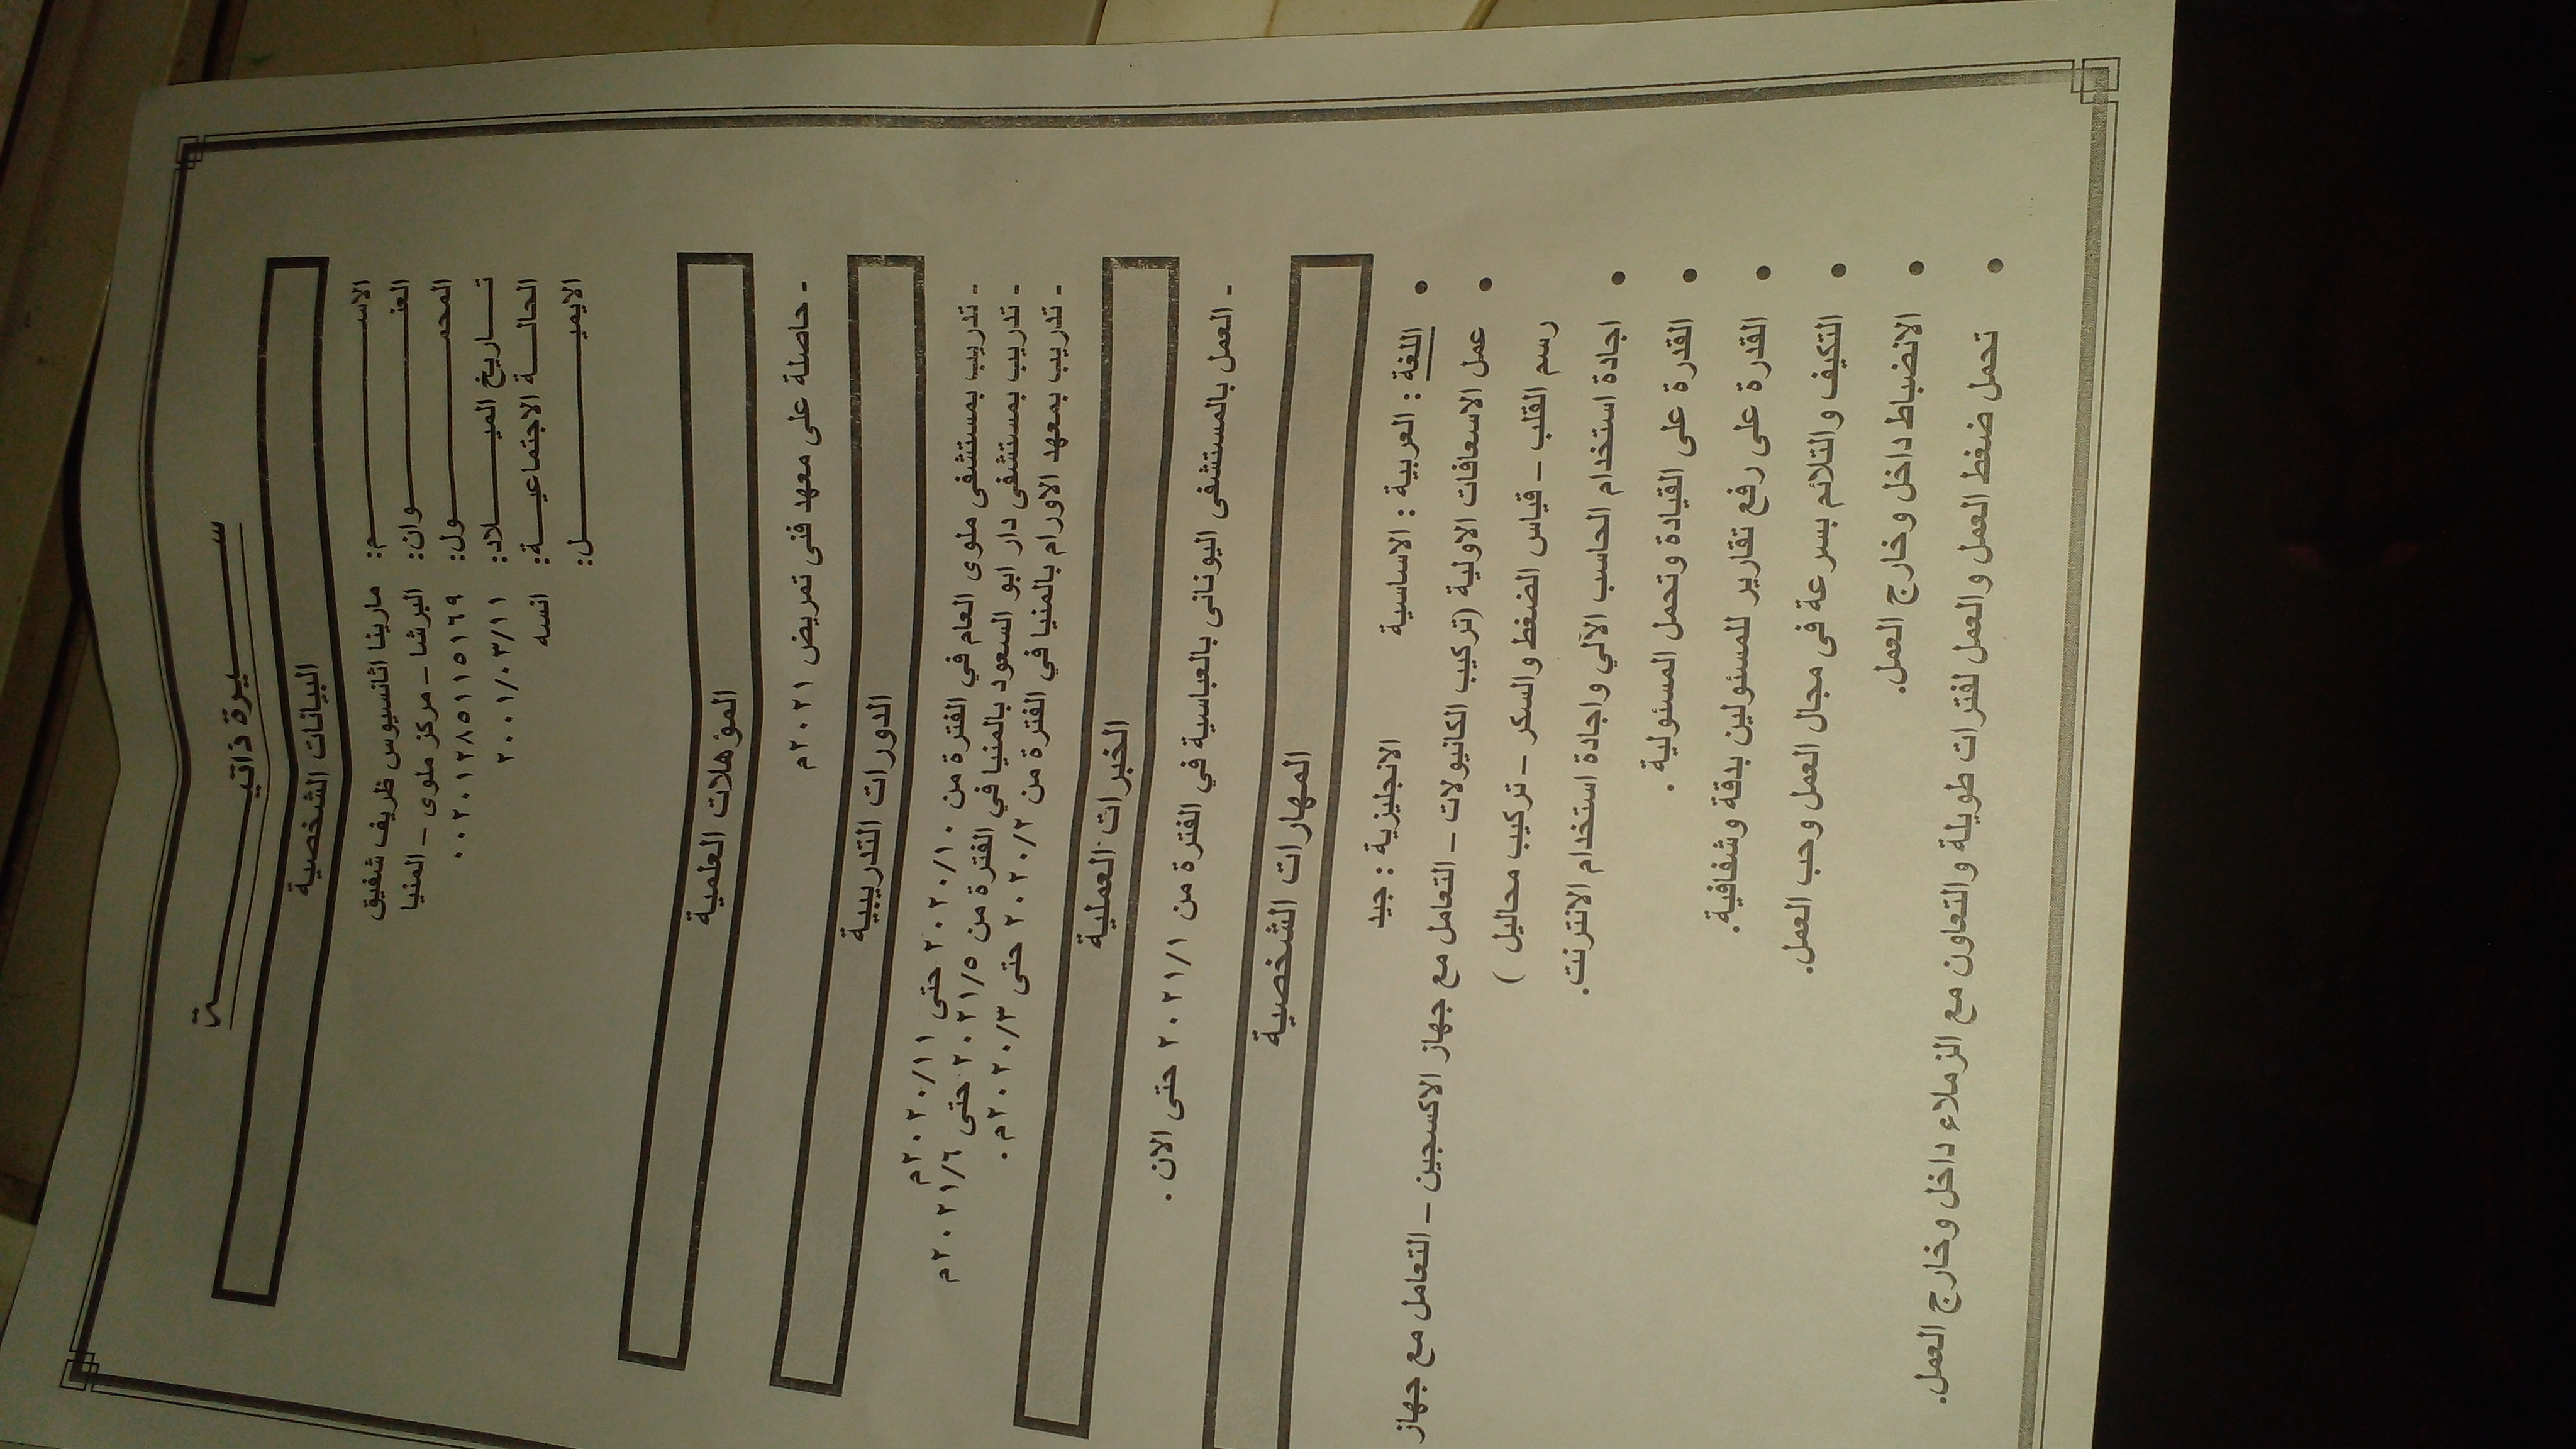 سيرة ذاتية
البيانات الشخصية
الاسم: مارينا اثانسيوس ظريف شفيق
العنوان: البرشا – مركز ملوى – المنيا
المحمول: ٠٠٢٠١٢٨٥١١٥١٦٩
تاريخ الميلاد: ٢٠٠١/٠٣/١١
الحالة الاجتماعية: انسه
الايميل:
المؤهلات العلمية
- حاصلة على معهد فنى تمريض ٢٠٢١م
الدورات التدريبية
- تدريب بمستشفى ملوى العام في الفترة من ٢٠٢٠/١٠ حتى ٢٠٢٠/١١م
- تدريب بمستشفى دار ابو السعود بالمنيا في الفترة من ٢٠٢١/٥ حتى ٢٠٢١/٦م
- تدريب بمعهد الاورام بالمنيا في الفترة من ٢٠٢٠/٢ حتى ٢٠٢٠/٣م.
الخبرات العملية
- العمل بالمستشفى اليونانى بالعباسية في الفترة من ٢٠٢١/١ حتى الان.
المهارات الشخصية
• اللغة : العربية : الاساسية الانجليزية : جيد
• عمل الاسعافات الاولية (تركيب الكانيولات – التعامل مع جهاز الاكسجين – التعامل مع جهاز
رسم القلب – قياس الضغط والسكر – تركيب محاليل )
• اجادة استخدام الحاسب الآلي واجادة استخدام الانترنت.
• القدرة على القيادة وتحمل المسئولية .
• القدرة على رفع تقارير للمسئولين بدقة وشفافية.
• التكيف والتلائم بسرعة فى مجال العمل وحب العمل.
• الانضباط داخل وخارج العمل.
• تحمل ضغط العمل والعمل لفترات طويلة والتعاون مع الزملاء داخل وخارج العمل.